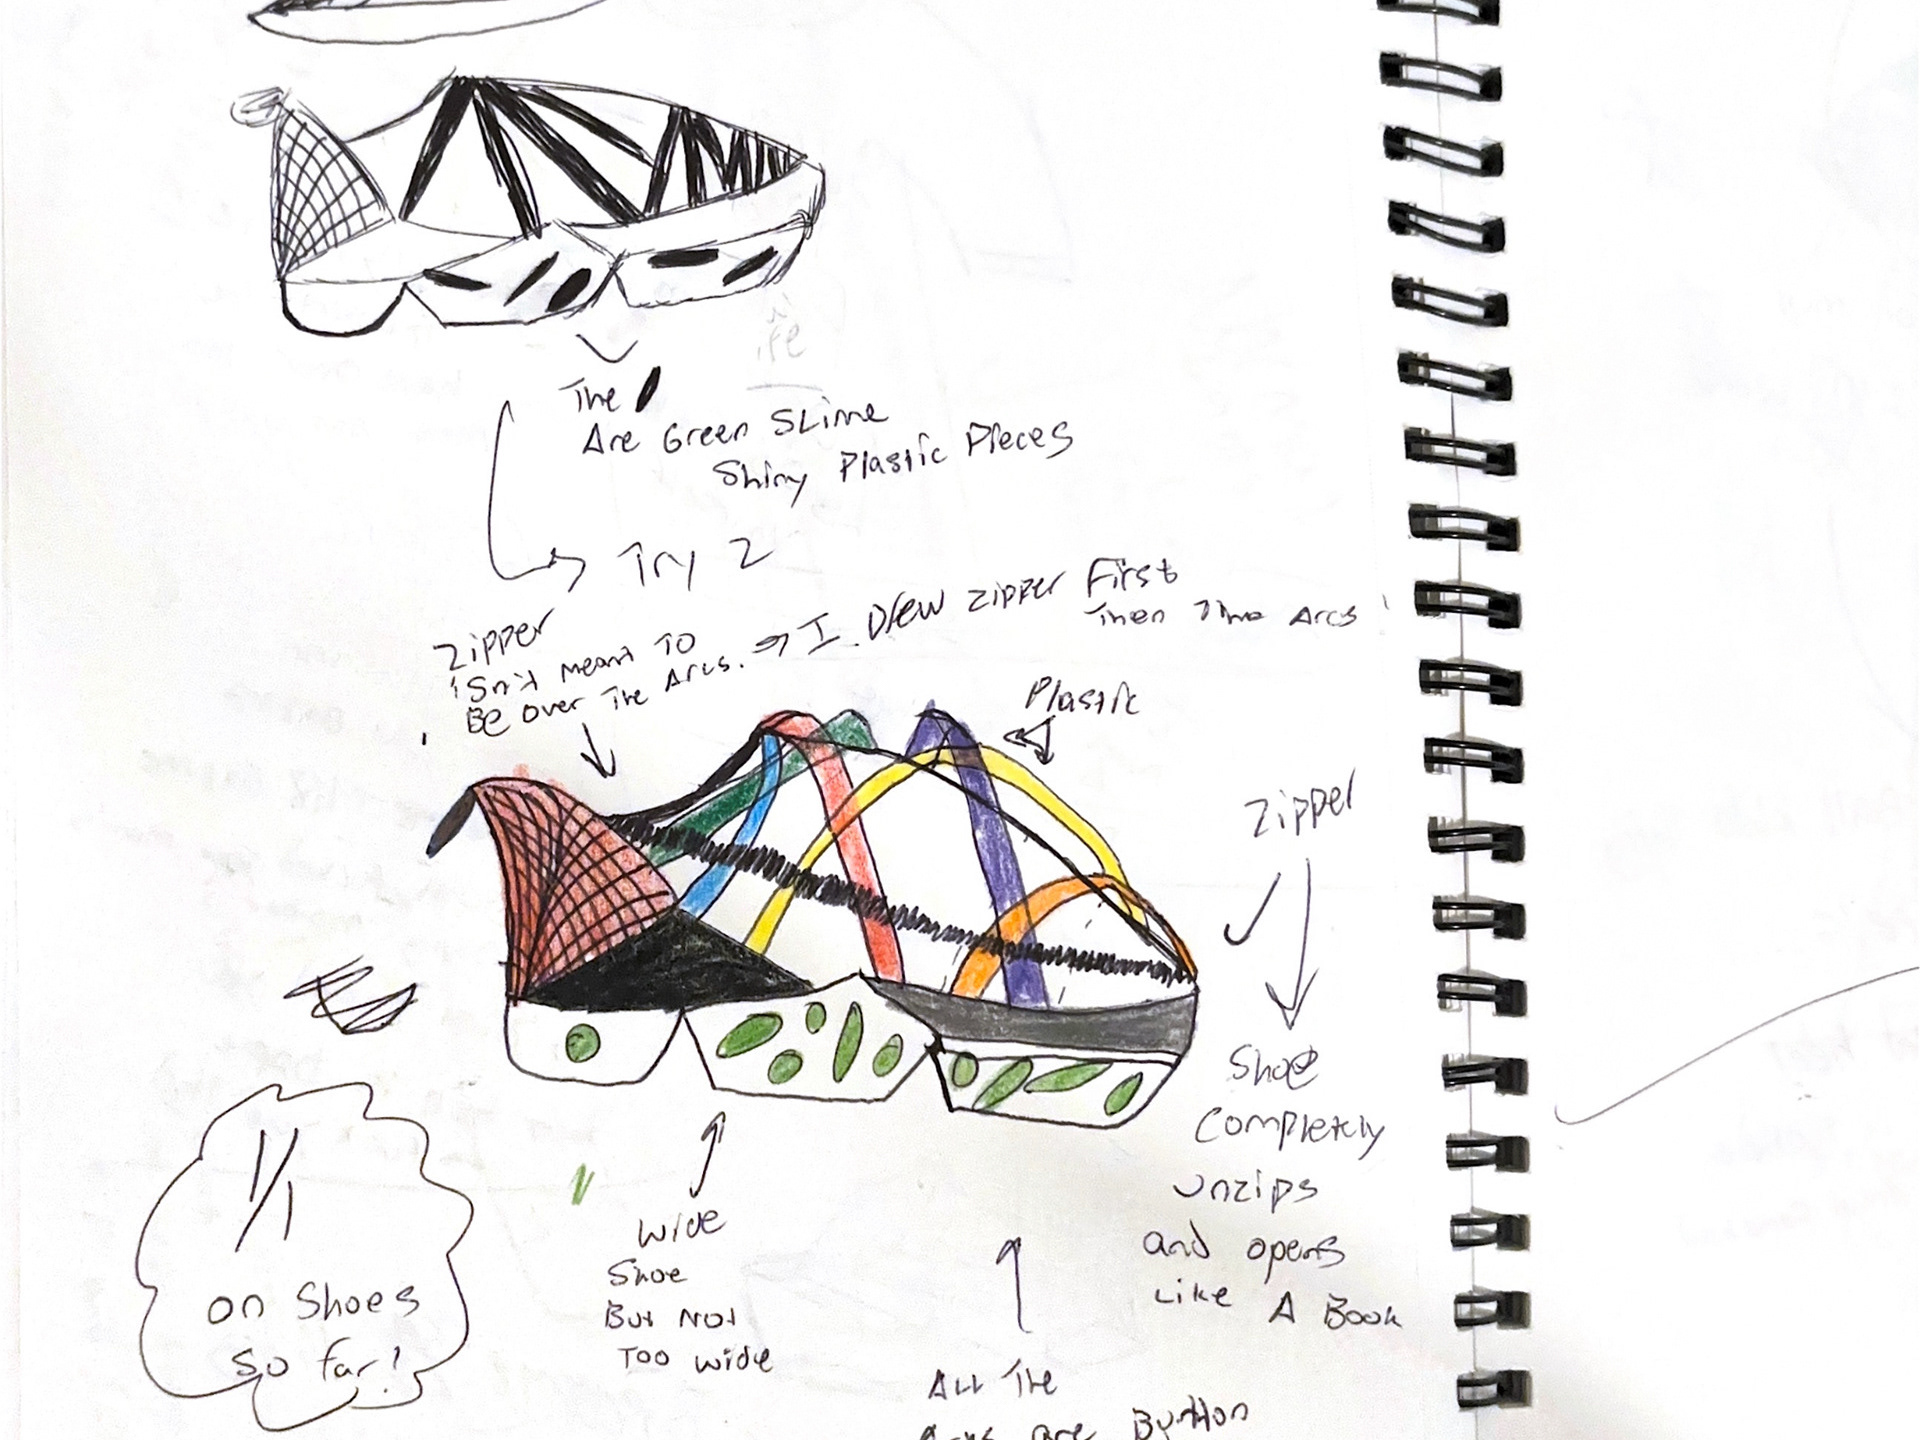 The
Are Green Slime
Shiny Plastic Pieces
Try 2
Zipper
isn't meant To
Be over The Arcs. → I Drew zipper First
Then The Arcs
Plastic
Zipper
Shoe
Completely
unzips
and opens
Like A Book
Wide
Shoe
But Not
Too wide
1/1
on Shoes
So far!
All The
are Button